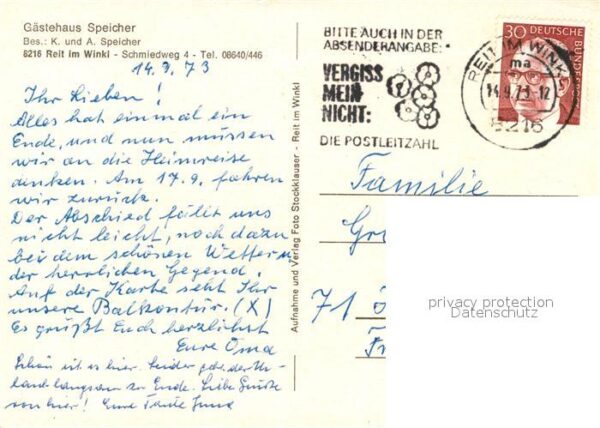 Gästehaus Speicher
Bes.: K. und A. Speicher
8216 Reit im Winkl - Schmiedweg 4 - Tel. 08640/446
14.9.73
Ihr Lieben!
Alles hat einmal ein
Ende, und nun müssen
wir an die Heimreise
denken. Am 17.9. fahren
wir zurück.
Der Abschied fällt uns
nicht leicht, noch dazu
bei dem schönen Wetter u
der herrlichen Gegend.
Auf der Karte seht Ihr
unsere Balkontür. (X)
Es grüßt Euch herzlichst
Eure Oma
Schön ist es hier. Leider geht der Ur-
laub langsam zu Ende. Liebe Grüße
von hier! Eure Tante
Aufnahme und Verlag Foto Stockklauser - Reit im Winkl
BITTE AUCH IN DER
ABSENDERANGABE:
VERGISS
MEIN
NICHT:
DIE POSTLEITZAHL
30 DEUTSCHE
BUNDESPOST
REIT IM WINKL
ma
14.9.73.-12
8216
Familie
Gr
71
privacy protection
Datenschutz